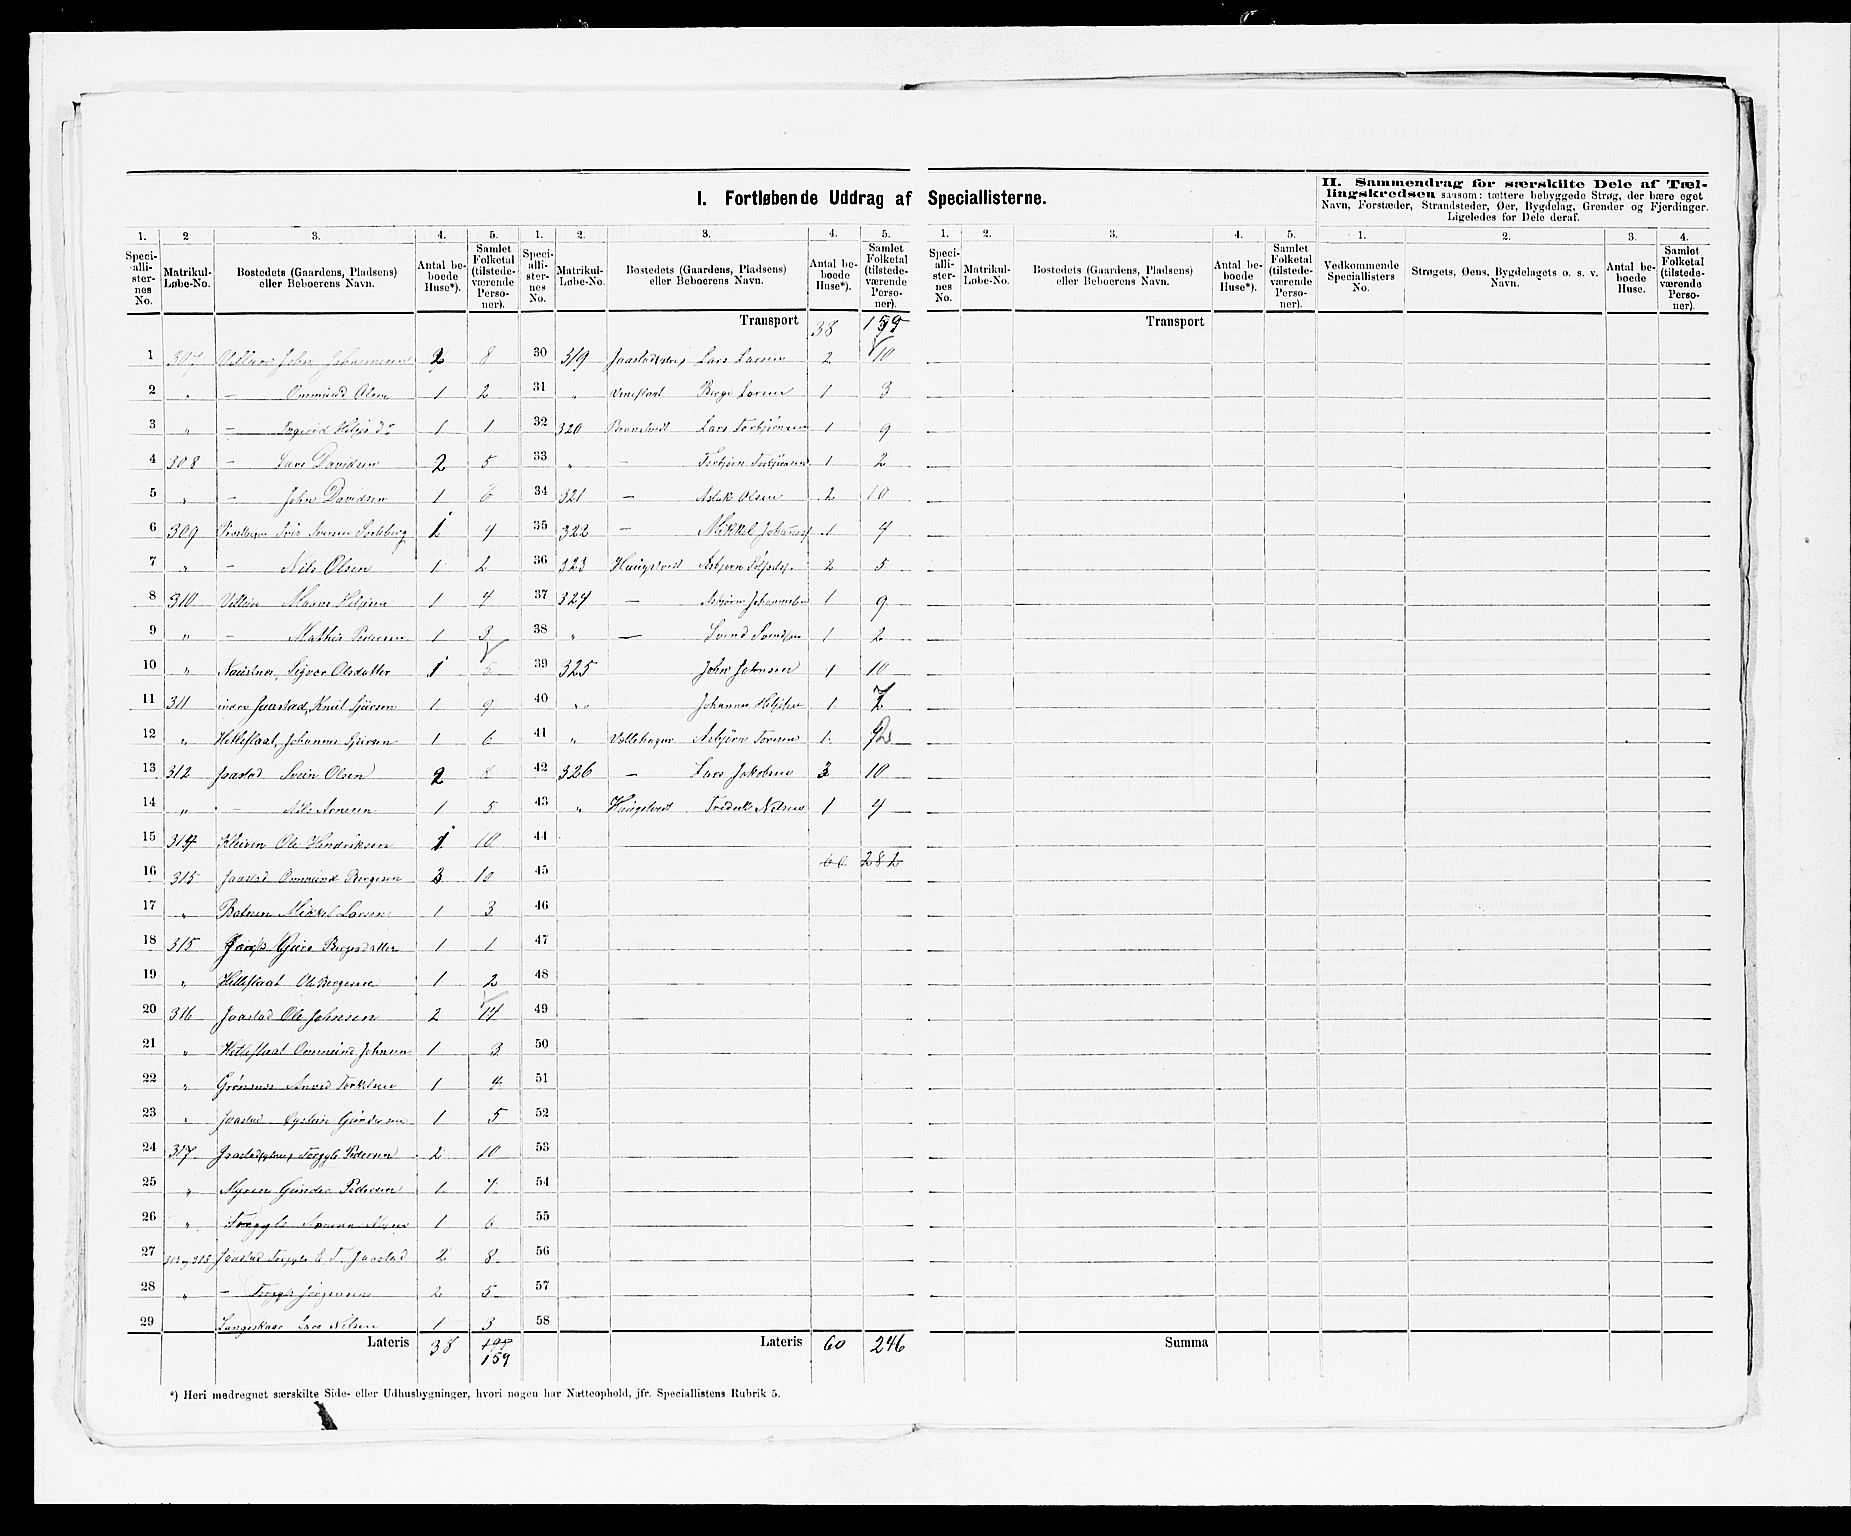 I. Fortløbende Uddrag af Speciallisterne.
II. Sammendrag for særskilte Dele af Tæl-
lingskredsen saasom: tættere bebyggede Strøg, der bære eget
Navn, Forstæder, Strandsteder, Øer, Bygdelag, Grender og Fjerdinger.
Ligeledes for Dele deraf.
1. 2 3. 4. 5. 1. 2. 3. 4. 5. 1. 2. 3. 4. 5. 1. 2. 3. 4.
Speci-alli-ster-nes No. Matrikul-Løbe-No. Bostedets (Gaardens, Pladsens) eller Beboerens Navn. Antal be-boede Huse*). Samlet Folketal (tilstede-værende Perso-ner).
Speci-alli-ster-nes No. Matrikul-Løbe-No. Bostedets (Gaardens, Pladsens) eller Beboerens Navn. Antal be-boede Huse*). Samlet Folketal (tilstede-værende Perso-ner).
Speci-alli-ster-nes No. Matrikul-Løbe-No. Bostedets (Gaardens, Pladsens) eller Beboerens Navn. Antal be-boede Huse*). Samlet Folketal (tilstede-værende Perso-ner).
Vedkommende Speciallisters No. Strøgets, Øens, Bygdelagets o. s. v. Navn. Antal be-boede Huse. Samlet Folketal (tilstede-værende Perso-ner).
1 307 John Johannesen 2 8
2 " — Ommund Olsen 1 2
3 " — 1 1
4 308 — Lars Davidsen 2 5
5 " — John Davidsen 1 6
6 309 1 4
7 " — Nils Olsen 1 2
8 310 1 4
9 " — Mathis Pedersen 1 3
10 " Sigvor Olsdatter 1 5
11 311 indre Jaastad, Knut Sjursen 1 9
12 " Hetleflaat, Johannes Sjursen 1 6
13 312 Jaastad Svein Olsen 2 8
14 " — Nils Arnesen 1 5
15 314 Kleiven Ole Hendriksen 1 10
16 315 Jaastad Ommund Bergesen 3 10
17 " Mikkel Larsen 1 3
18 315 Bergesdatter 1 1
19 " Hetleflaat Ole Bergesen 1 2
20 316 Jaastad Ole Johnsen 2 14
21 " Hetleflaat Ommund Johnsen 1 3
22 " Grønsnes Torkelsen 1 4
23 " Jaastad Øystein Gundersen 1 5
24 317 Torgyls Pedersen 2 10
25 " Myren Gunder Pedersen 1 4
26 " Torgyls 1 6
27 Jaastad Torgyls E. T. Jaastad 2 8
28 " — Torgyls Jørgensen 2 5
29 Langeskaar Lars Nilsen 1 3
Lateris 38 159
Transport 38 159
30 319 Lars Larsen 2 10
31 " Berge Larsen 1 3
32 320 Lars Torbjørnsen 1 9
33 " — Torbjørn Torbjørnsen 1 2
34 321 — Aslak Olsen 2 10
35 322 — Mikkel 1 4
36 323 Haugstvedt Asbjørn 2 5
37 324 — Asbjørn Johannesen 1 9
38 " — Svend Svendsen 1 2
39 325 John Johnsen 1 10
40 " Johannes 1 7
41 " Asbjørn Toresen 1 2
42 326 — Lars Jakobsen 3 10
43 " Haugstvedt Fredrik Nilsen 1 4
44
45 60 282
46
47
48
49
50
51
52
53
54
55
56
57
58
Lateris 60 246
Transport
Summa
*) Heri medregnet særskilte Side- eller Udhusbygninger, hvori nogen har Natteophold, jfr. Speciallistens Rubrik 5.